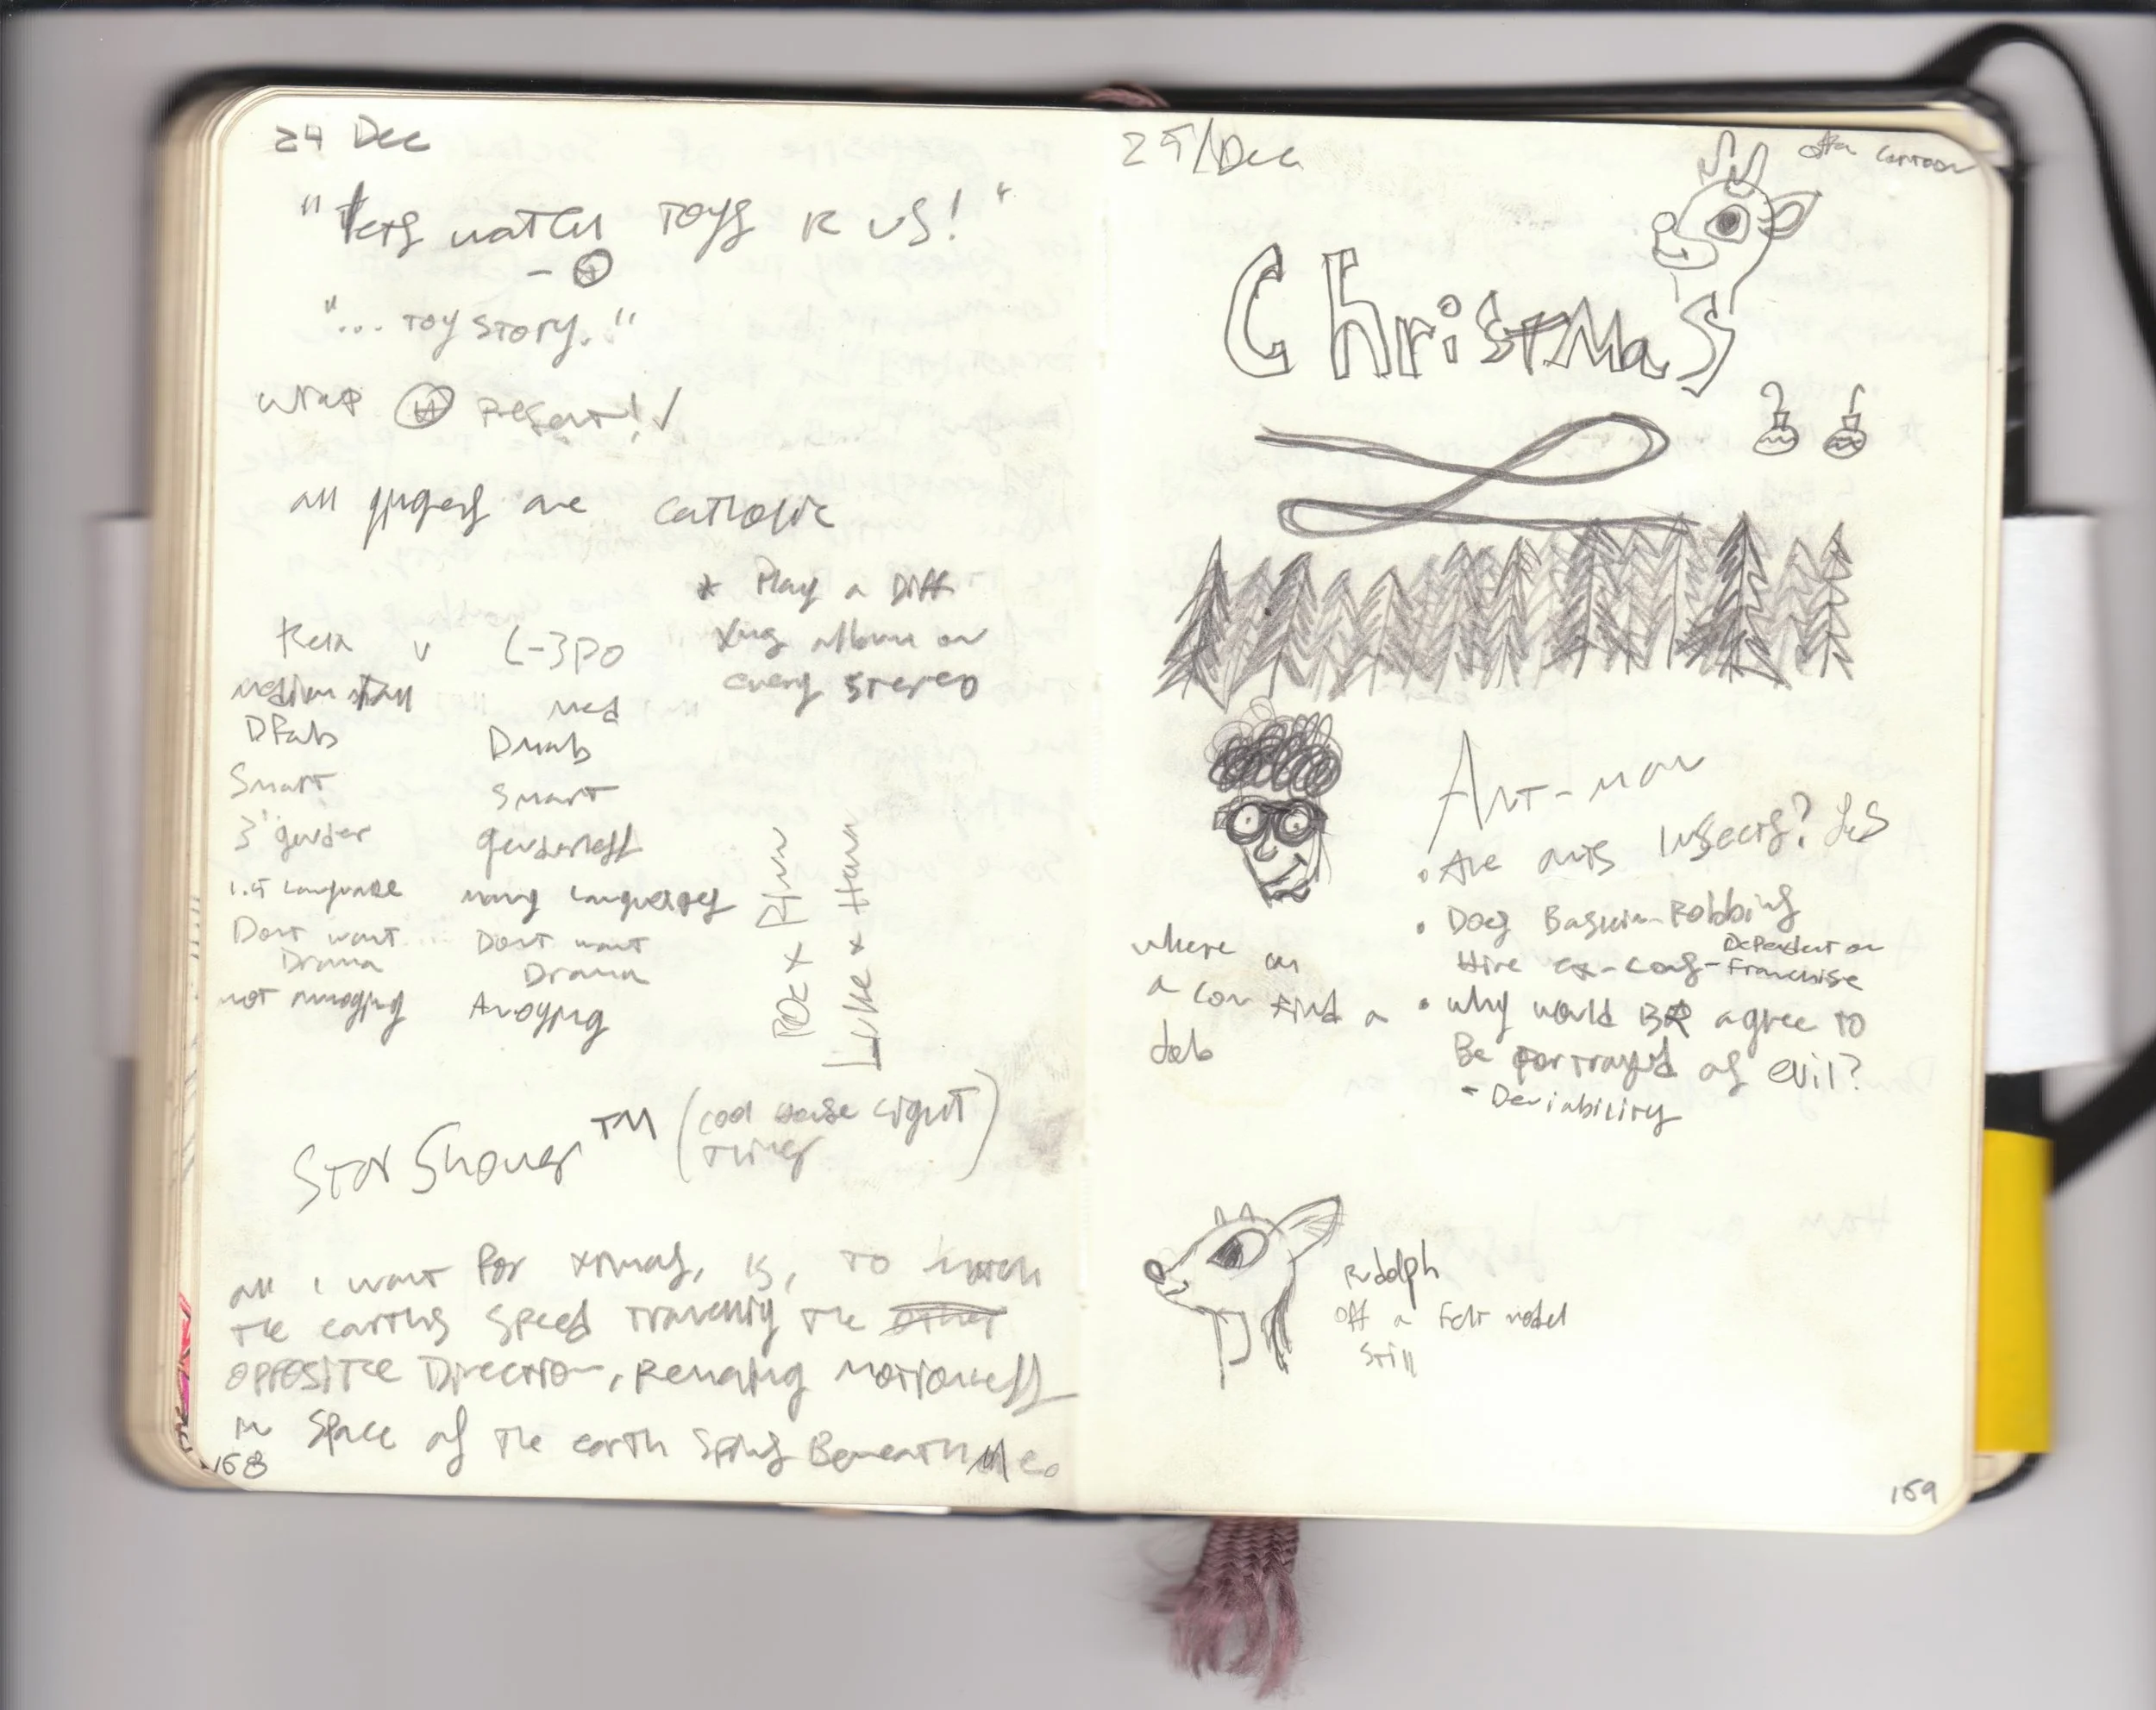 24 Dec
"Lets watch Toys R US!"
- H
"... Toy Story."
wrap H present! ✓
all gingers are catholic
* Play a Diff
Xmg album on
every stereo
v C-3PO
medium tall med
DFab Dmab
Smart Smart
3rd gender genderless
1.5 Language many Languages
Dont want Dont want
Drama Drama
not annoying Anoying
Poe x Finn
Luke x Han
Star Shower™ (cool house light
things)
all i want for xmas, is, to match
the earths speed traveling the other
opposite Direction, Remaing motionless
in space as the earth spins Beneath Me.
168
25/Dec
off a cartoon
Christmas
Ant-man
• Are ants insects? Yes
• Does Baskin-Robbins
Hire ex-cons - Dependent on
Franchise
where can
a con find a
Job
• why would BR agree to
Be portrayed as evil?
- Deniability
Rudolph
off a Felt model
Still
169